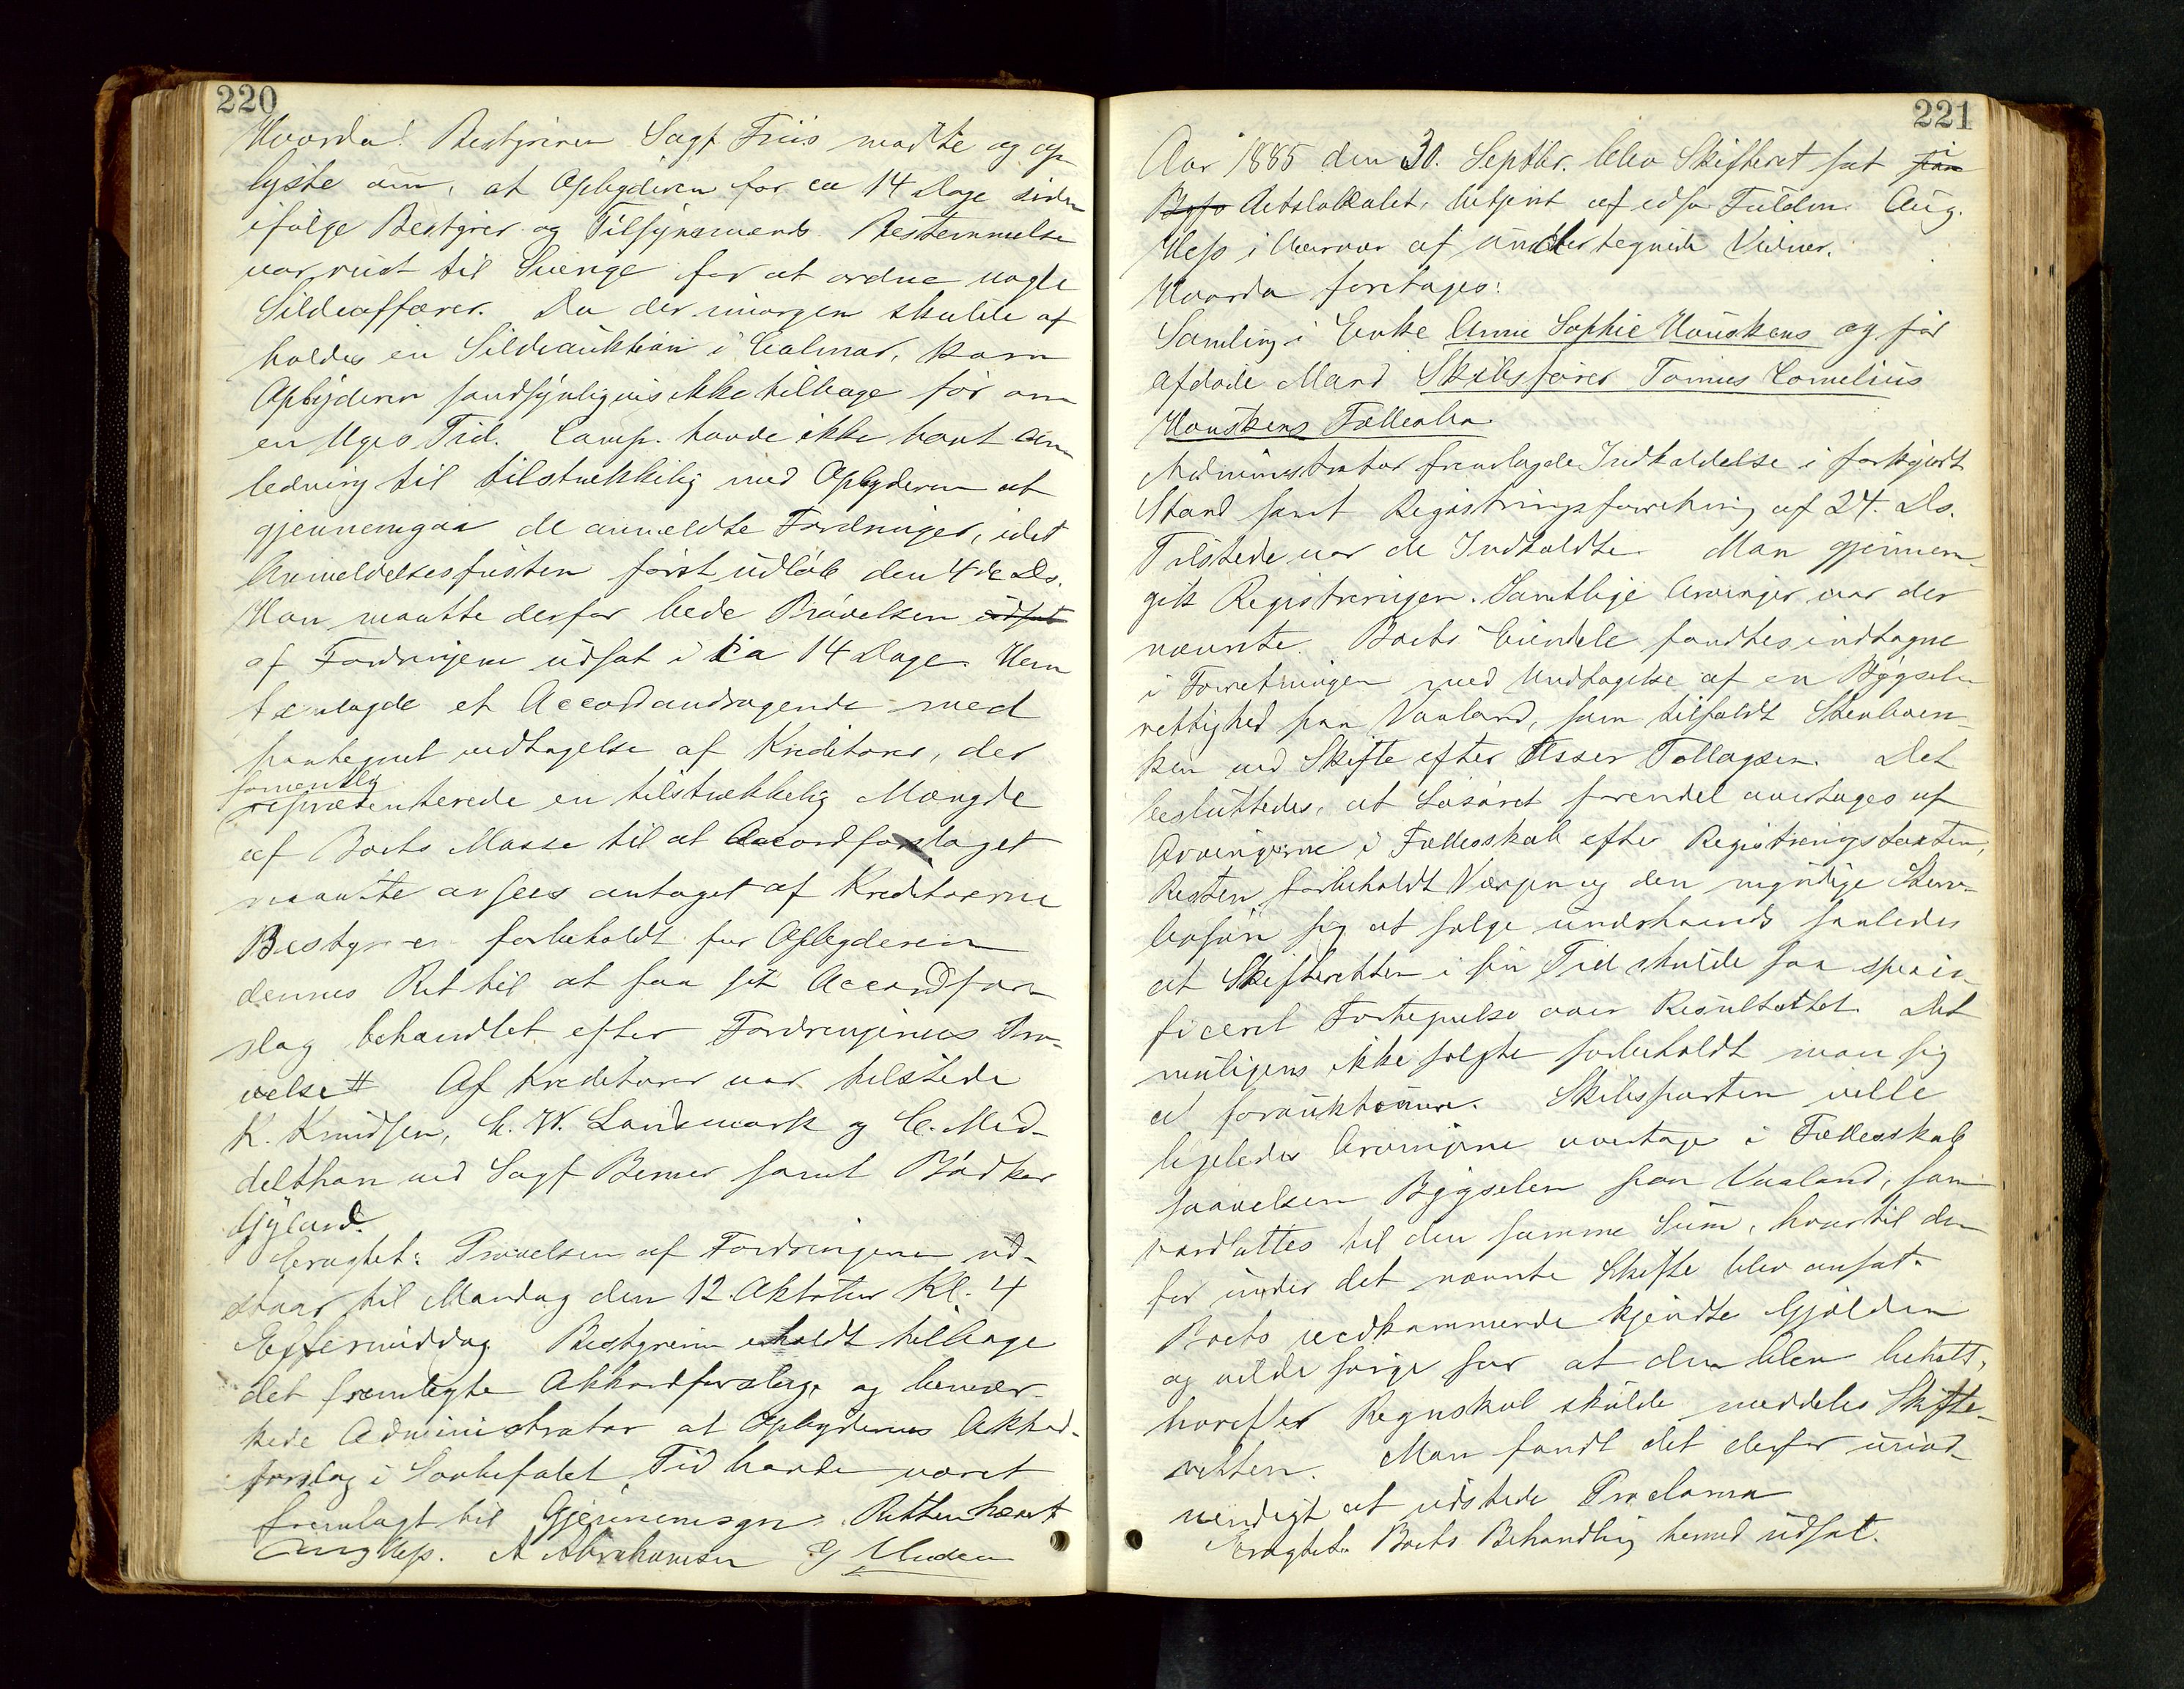 220
Hvorda! Bestyreren Sagf Friis mødte og op
lyste om, at Opbyderen for ca 14 Dage siden
ifølge Bestyrer og Tilsynsmænds Bestemmelse
var reist til Sverige for at ordne nogle
Sildeaffærer. Da der imorgen skulde af
holdes en Sildeauktion i Calmar, kom
Opbyderen sandsynligvis ikke tilbage før om
en Uges Tid. Comp. havde ikke havt an
ledning til tilstrækkelig med Opbyderen at
gjennemgaa de anmeldte Fordringer, idet
Anmeldelsesfristen først udløb den 4de Ds.
Han maatte derfor bede Prøvelsen udsat
af Fordringerne udsat i ca 14 Dage. Han
fremlagde et Accordandragende med
paategnet vedtagelse af Kreditorer, der
formentlig
repræsenterede en tilstrækkelig Mængde
af Boets Masse til at Accordforslaget
maatte ansees antaget af Kreditorerne
Bestyreren forbeholdt for Opbyderen
dennes Ret til at faa sit Accordfor-
slag behandlet efter Fordringernes Prø-
velse # Af Kreditorer var tilstede
K. Knudsen, C. W. Landmark og C. Mid-
delthon ved Sagf Bemer samt Bødker
Gyland.
Eragtet: Prøvelsen af Fordringerne ud-
staar til Mandag den 12. Oktober Kl. 4
Eftermiddag. Bestyreren erholdt tilbage
det fremlagte Akkordforslag, og bemær-
kede Administrator at Opbyderens Akkord-
forslag i Lovbefalet Tid havde været
fremlagt til Gjennemsyn. Retten hævet
Aug Hess. A Abrahamsen
221
Aar 1885 den 30. Septbr. blev Skifteret sat i paa
Byfo Retslokalet, betjent af edsv. Fuldm. Aug.
Hess i Nærvær af undertegnede Vidner.
Hvorda foretages:
Samling i Enke Anne Sophie Houskens og før
afdøde Mand Skibsfører Tønnes Cornelius
Houskens Fællesbo.
Administrator fremlagde Indkaldelse i forkyndt
Stand samt Registreringsforretning af 24. Ds.
Tilstede var de Indkaldte. Man gjennem-
gik Registreringen. Samtlige Arvinger var der
nævnte. Boets Eiendele fandtes indtagne
i Forretningen med Undtagelse af en Bygsel-
rettighed paa Vaaland, som tilfaldt Sterboen-
ken ved Skifte efter Asser Tollagsen. Det
besluttedes, at Løsøret forendel overtages af
Arvingerne i Fællesskab efter Registreringstaxten,
Resten forbeholdt Værgen og den myndige Sterv-
bosøn sig at sælge underhaands saaledes
at Skifteretten i sin Tid skulde faa speci-
ficeret Fortegnelse over Resultatet. Det
muligens ikke solgte forbeholdt man sig
at forauktionere. Skibsparten vilde
ligeledes Arvingerne overtage i Fællesskab
saavelsom Bygselen paa Vaaland, som
værdsattes til den samme Sum, hvortil den
før under det nævnte Skifte blev ansat.
Boets vedkommende kjendte Gjælden
og vilde sørge for at den blev betalt,
hvorefter Regnskab skulde meddeles Skifte-
retten. Man fandt det derfor unød-
vendigt at udstede Proclama
Eragtet. Boets Behandling hermed udsat.